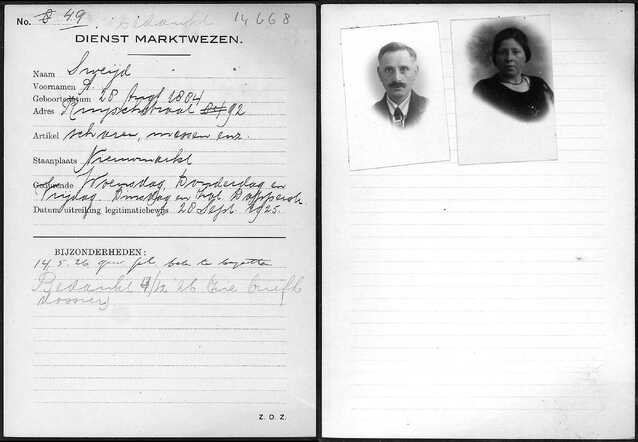 No. 49 Bedankt 14668
DIENST MARKTWEZEN.
Naam Sweijd
Voornamen A.
Geboortedatum 28 Augt 1884
Adres Ruyschstraat 92
Artikel scharen, messen enz.
Staanplaats Nieuwmarkt
Gedurende Woensdag, Donderdag en
Vrijdag. Dinsdag en
Datum uitreiking legitimatiebewijs 20 Sept. 1925.
BIJZONDERHEDEN:
14.5.26
Bedankt 26 zie brief
dossier
Z. D. Z.